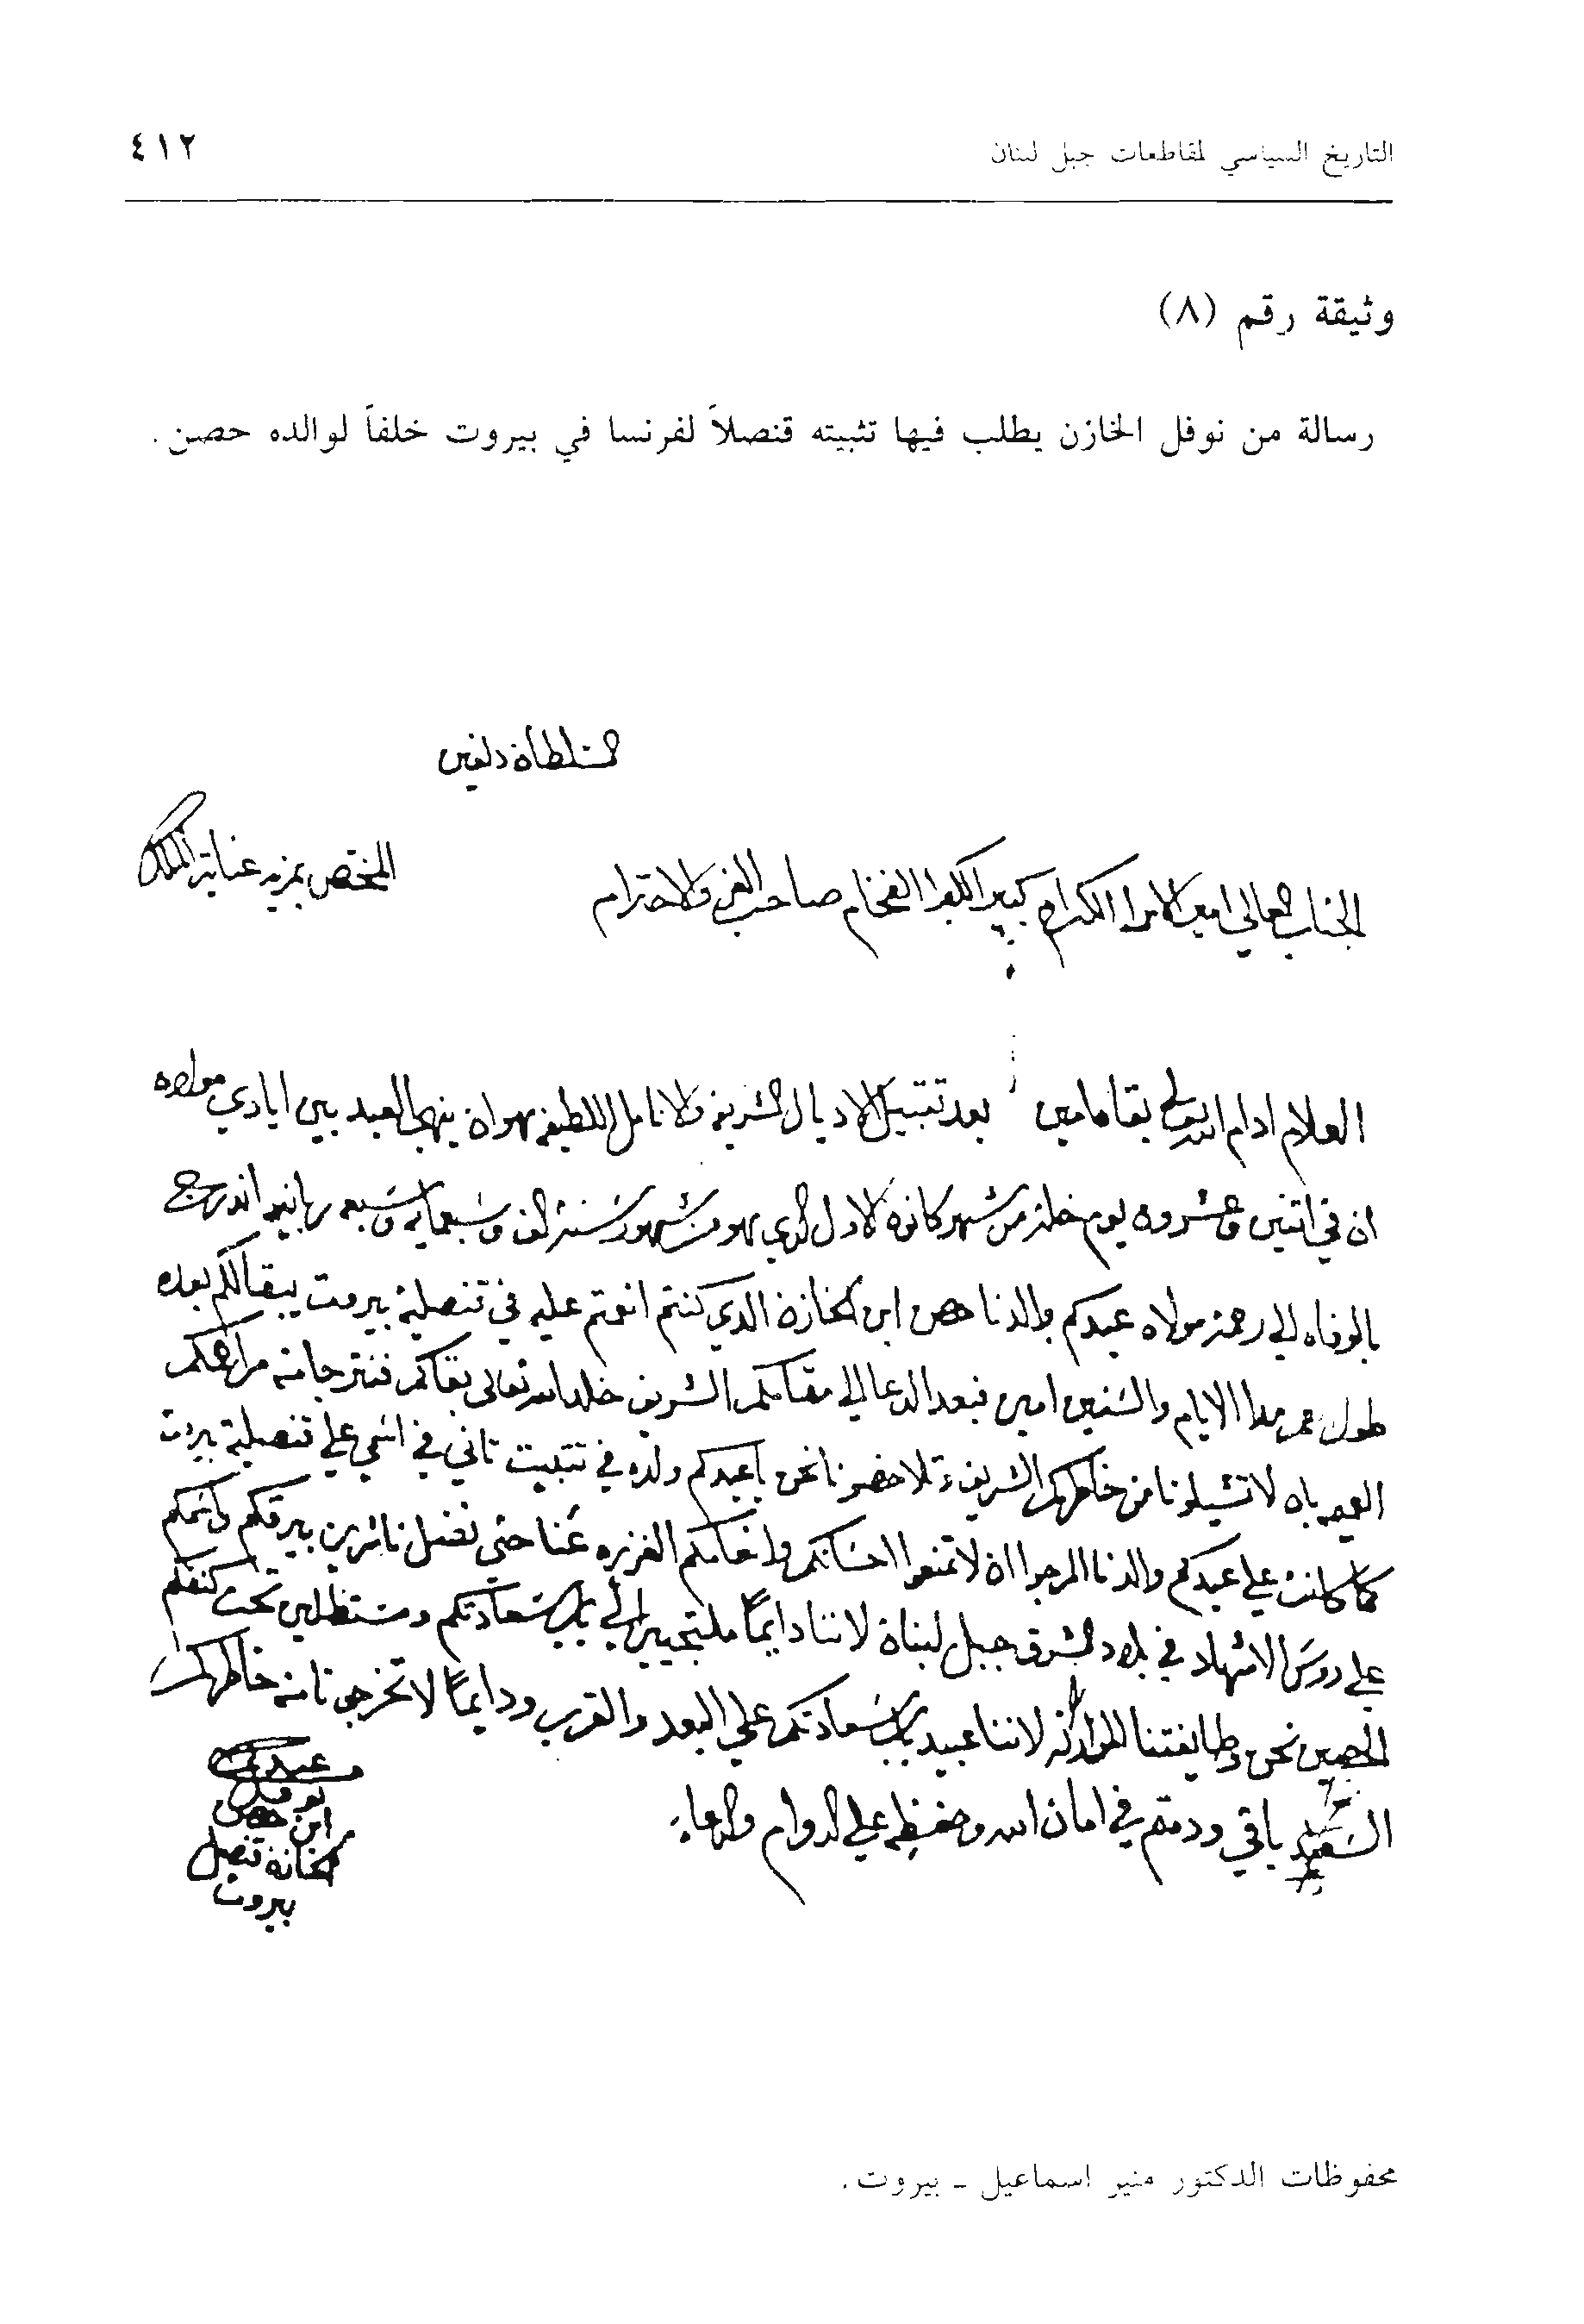 التاريخ السياسي لمقاطعات جبل لبنان ٤١٢
وثيقة رقم (٨)
رسالة من نوفل الخازن يطلب فيها تثبيته قنصلاً لفرنسا في بيروت خلفاً لوالده حصن .
الجناب العالي امير الامرا الكرام كبير الكبرا الفخام صاحب العز والاحترام المختص بمزيد عناية الملك
العلام ادام الله تعالى بقاه امين بعد تقبيل الاديال الشريفه والانامل اللطيفه هو ان ينهي العبد بين ايادي مولاه
ان في اتنين وعشرون يوم خلة من شهر كانون الاول الدي هو من شهور سنة الف وسبعماية وسبعه اندرج
بالوفاه الى رحمة مولاه عبدكم والدنا حصن ابن الخازن الدي كنتم انعمتم عليه في قنصلية بيروت يبقا لكم بعده
طول عمر مدا الايام والسنين امين فبعد الدعا الى مقامكم الشريف خلد الله تعالى بقاكم فنترجا من مراحمكم
العميمه بان لا تشيلونا من خاطركم الشريف نحن عبيدكم ولده في تتبيت تاني في اسمي على قنصلية بيروت
كما كانت على عبدكم والدنا المرجوا ان لا تمنعوا احسانكم وانعامكم الغزيره عنا حتى نضل ناشرين بيرقكم واسمكم
على روس الاشهاد في بلاد الشرق جبل لبنان لاننا دايماً ملتجيين الى باب سعادتكم ومستظلين تحت كنفكم
الحصين نحن وطايفتنا الموارنه لاننا عبيد باب سعادتكم على البعد والقرب ودايماً لا تخرجونا من خاطركم
السعيد باقي ودمتم في امان الله وحفظه على الدوام والدعا
عبدكم
نوفل
ابن حصن
الخازن قنصل
بيروت
محفوظات الدكتور منير اسماعيل - بيروت .